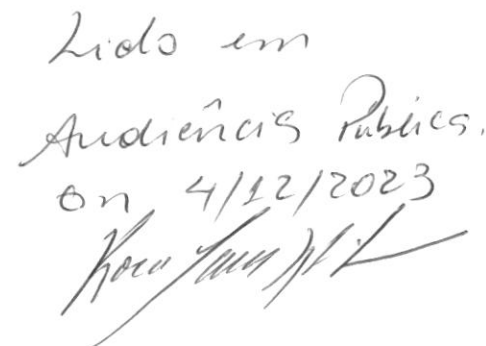 Lido em
Audiência Pública.
em 4/12/2023